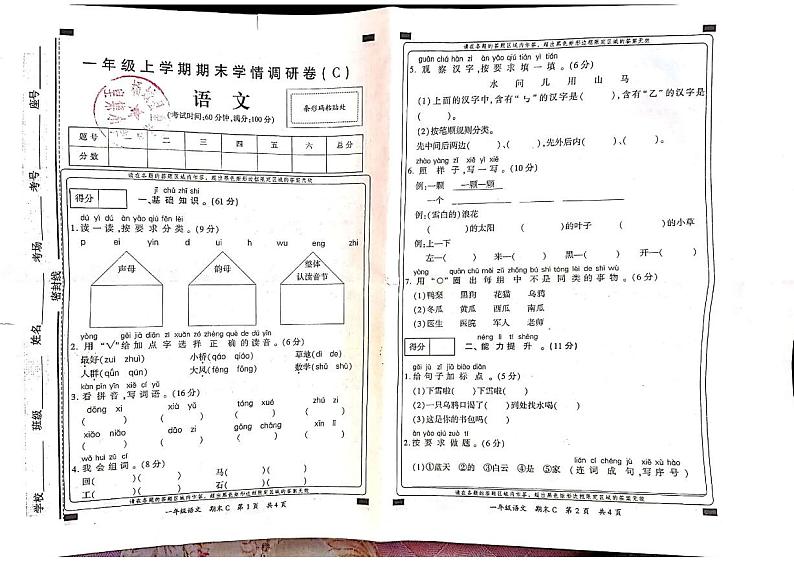 座号
考号
考场
姓名
班级
学校
密封线
一年级上学期期末学情调研卷(C)
语文
(考试时间:60分钟,满分:100分)
条形码粘贴处
题号 一 二 三 四 五 六 总分
分数
请在各题的答题区域内作答,超出黑色矩形边框限定区域的答案无效
得分
jī chǔ zhī shi
一、基础知识。(61分)
dú yì dú àn yāo qiú fēn lèi
1.读一读,按要求分类。(9分)
p ei yin d ui h wu eng zhi
声母 韵母 整体
认读音节
yòng gěi jiā diǎn zì xuǎn zé zhèng què de dú yīn
2.用“√”给加点字选择正确的读音。(6分)
最好(zuì zhuì) 小桥(qáo qiáo) 草地(dì de)
人群(qǘn qún) 大风(fēng fōng) 数学(shǔ shù)
kàn pīn yīn xiě cí yǔ
3.看拼音,写词语。(16分)
dōng xi xià yǔ tóng zì zhú zi
xiǎo niǎo dà zì gōng zuò míng liàng
wǒ huì zǔ cí
4.我会组词。(8分)
回( ) 马( )
工( ) 石( )
请在各题的答题区域内作答,超出黑色矩形边框限定区域的答案无效
一年级语文 期末C 第1页 共4页
请在各题的答题区域内作答,超出黑色矩形边框限定区域的答案无效
guān chá hàn zì àn yāo qiú tián yì tián
5.观察汉字,按要求填一填。(6分)
水 问 儿 用 山 马
(1)上面的汉字中,含有“㇉”的汉字是( ),含有“乙”的汉字是
( )。
(2)按笔顺规则分类。
先中间后两边( )、( ),先外后内( )、( )。
zhào yàng zi xiě yì xiě
6.照样子,写一写。(16分)
例:一颗 一颗一颗
一个
例:(雪白的)浪花
( )的太阳 ( )的叶子 ( )的小草
例:上—下
左—( ) 来—( ) 黑—( ) 开—( )
yòng quān chū měi zǔ zhōng bú shì tóng lèi de shì wù
7.用“○”圈出每组中不是同类的事物。(6分)
(1)鸭梨 黑狗 花猫 乌鸦
(2)冬瓜 黄瓜 南瓜 西瓜
(3)医生 医院 军人 老师
得分
néng lì tí shēng
二、能力提升。(11分)
gěi jù zi jiā biāo diǎn
1.给句子加标点。(5分)
(1)下雪啦( )下雪啦( )
(2)一只乌鸦口渴了( )到处找水喝( )
(3)这是你的书包吗( )
àn yāo qiú zuò tí
2.按要求做题。(6分)
lián cí chéng jù xiě xù hào
(1)①蓝天 ②的 ③白云 ④是 ⑤家 (连词成句,写序号)
请在各题的答题区域内作答,超出黑色矩形边框限定区域的答案无效
一年级语文 期末C 第2页 共4页